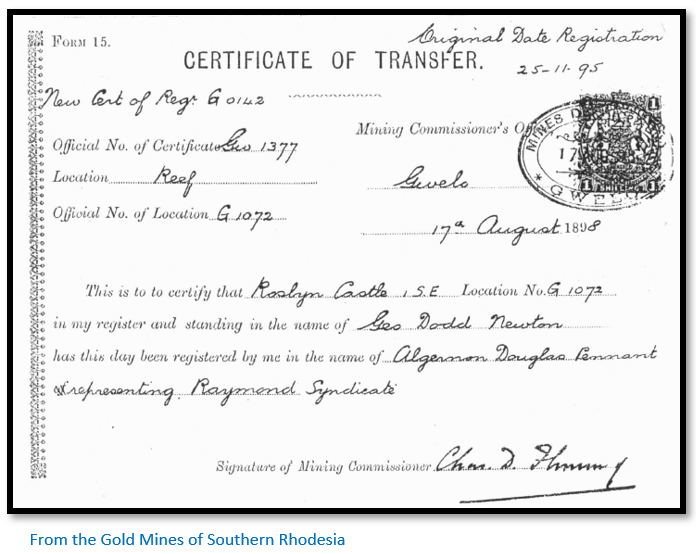 FORM 15.
Original Date Registration
25-11-95
CERTIFICATE OF TRANSFER.
New Cert of Regr G 0142
Official No. of Certificate Geo 1377
Mining Commissioner's
Location Reef
Gwelo
Official No. of Location G 1072
17th August 1898
MINES
17
GWELO
1 1
1 SHILLING 1
This is to to certify that Roslyn Castle 1 S.E Location No. G 1072
in my register and standing in the name of Geo Dodd Newton
has this day been registered by me in the name of Algernon Douglas Pennant
representing Raymond Syndicate
Signature of Mining Commissioner Chas. D.
From the Gold Mines of Southern Rhodesia